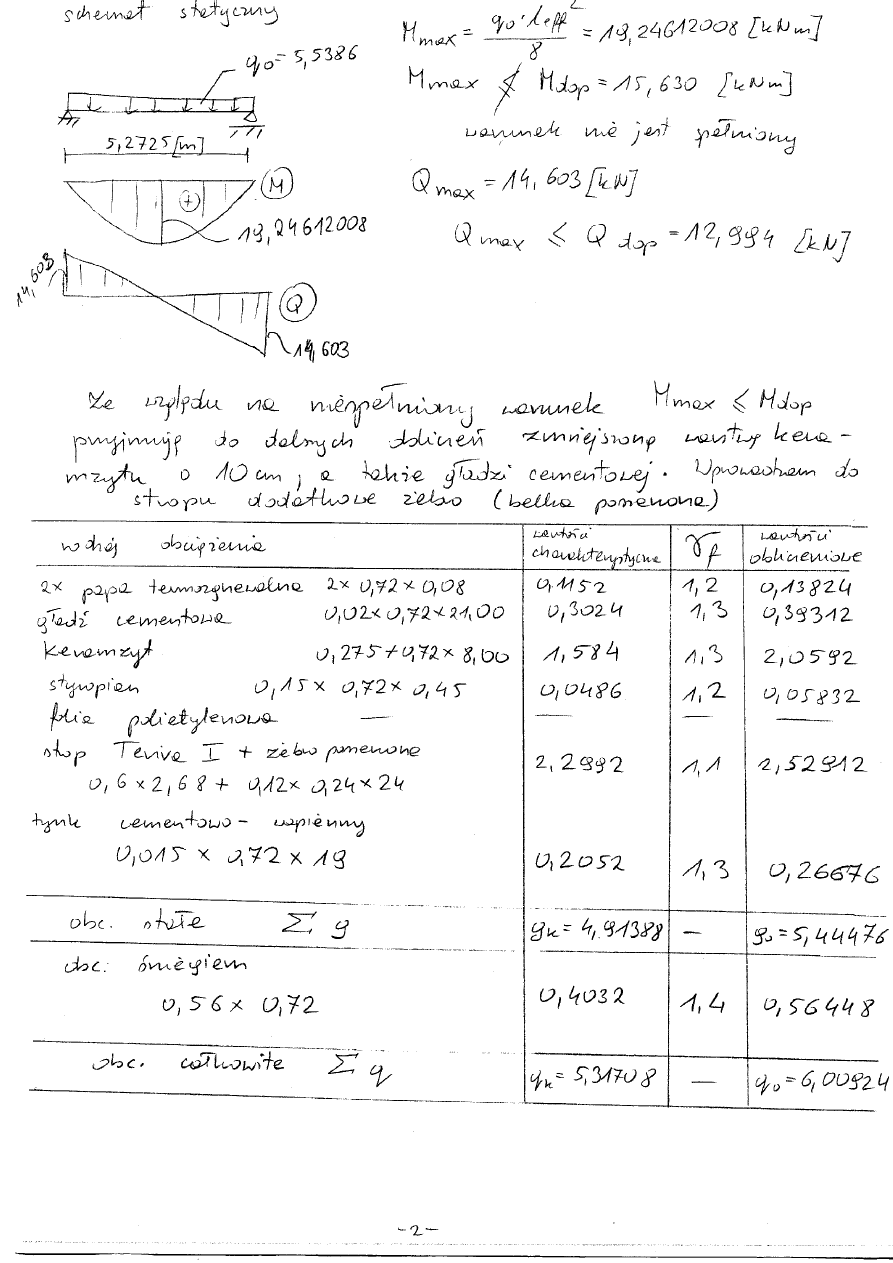 schemat statyczny
q₀=5,5386
5,2725[m]
M
+
19,24612008
14,603
Q
14,603
Mmax = q₀·leff² / 8 = 19,24612008 [kNm]
Mmax ≰ Mdop = 15,630 [kNm]
warunek nie jest spełniony
Qmax = 14,603 [kN]
Qmax ≤ Qdop = 12,994 [kN]
Ze względu na niespełniony warunek Mmax ≤ Mdop
przyjmuję do dalszych obliczeń zmniejszoną warstwę kera-
mzytu o 10 cm, a także gładzi cementowej. Wprowadzam do
stropu dodatkowe żebro (belka ponowiona)
rodzaj obciążenia wartości charakterystyczne γf wartości obliczeniowe
2x papa termozgrzewalna 2x0,72x0,08 0,1152 1,2 0,13824
gładź cementowa 0,02x0,72x21,00 0,3024 1,3 0,39312
Keramzyt 0,275+0,72x8,00 1,584 1,3 2,0592
styropian 0,15x 0,72x 0,45 0,0486 1,2 0,05832
folia polietylenowa — — — —
stop Teriva I + żebro ponowione
0,6x2,68+ 0,12x 0,24x24 2,2992 1,1 2,52912
tynk cementowo-wapienny
0,015 x 0,72 x 19 0,2052 1,3 0,26676
obc. stałe Σ g gk= 4,91388 — g₀=5,44476
obc. śniegiem
0,56x 0,72 0,4032 1,4 0,56448
obc. całkowite Σ q qk= 5,31708 — q₀=6,00924
-2-